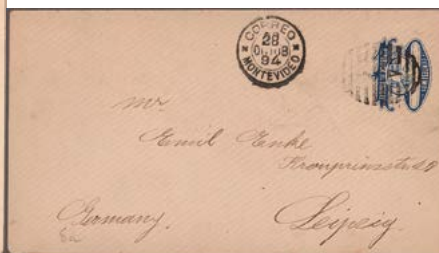 CORREO
28
OCTUB
94
MONTEVIDEO
Mr
Emil Enke
Kronprinzstr.
Germany.
Leipzig.